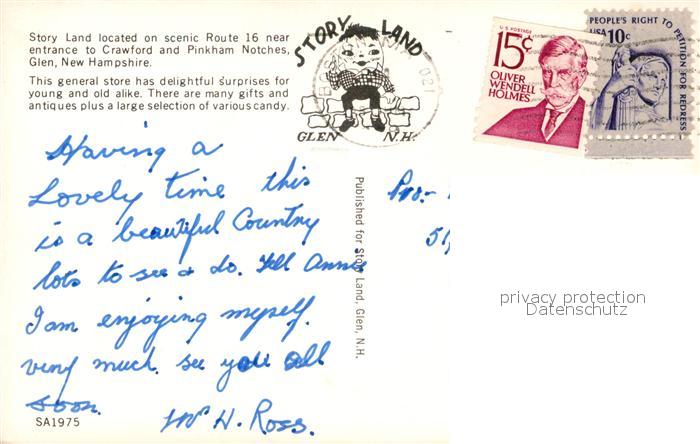 Story Land located on scenic Route 16 near
entrance to Crawford and Pinkham Notches,
Glen, New Hampshire.
This general store has delightful surprises for
young and old alike. There are many gifts and
antiques plus a large selection of various candy.
STORY LAND
GLEN N.H.
U.S. POSTAGE
15¢
OLIVER
WENDELL
HOLMES
PEOPLE'S RIGHT TO PETITION FOR REDRESS
USA 10c
Having a
Lovely time this
is a beautiful Country
lots to see & do. Tell Annie
I am enjoying myself.
very much. see you all
soon.
H. Ross.
SA1975
Published for Story Land, Glen, N.H.
privacy protection
Datenschutz